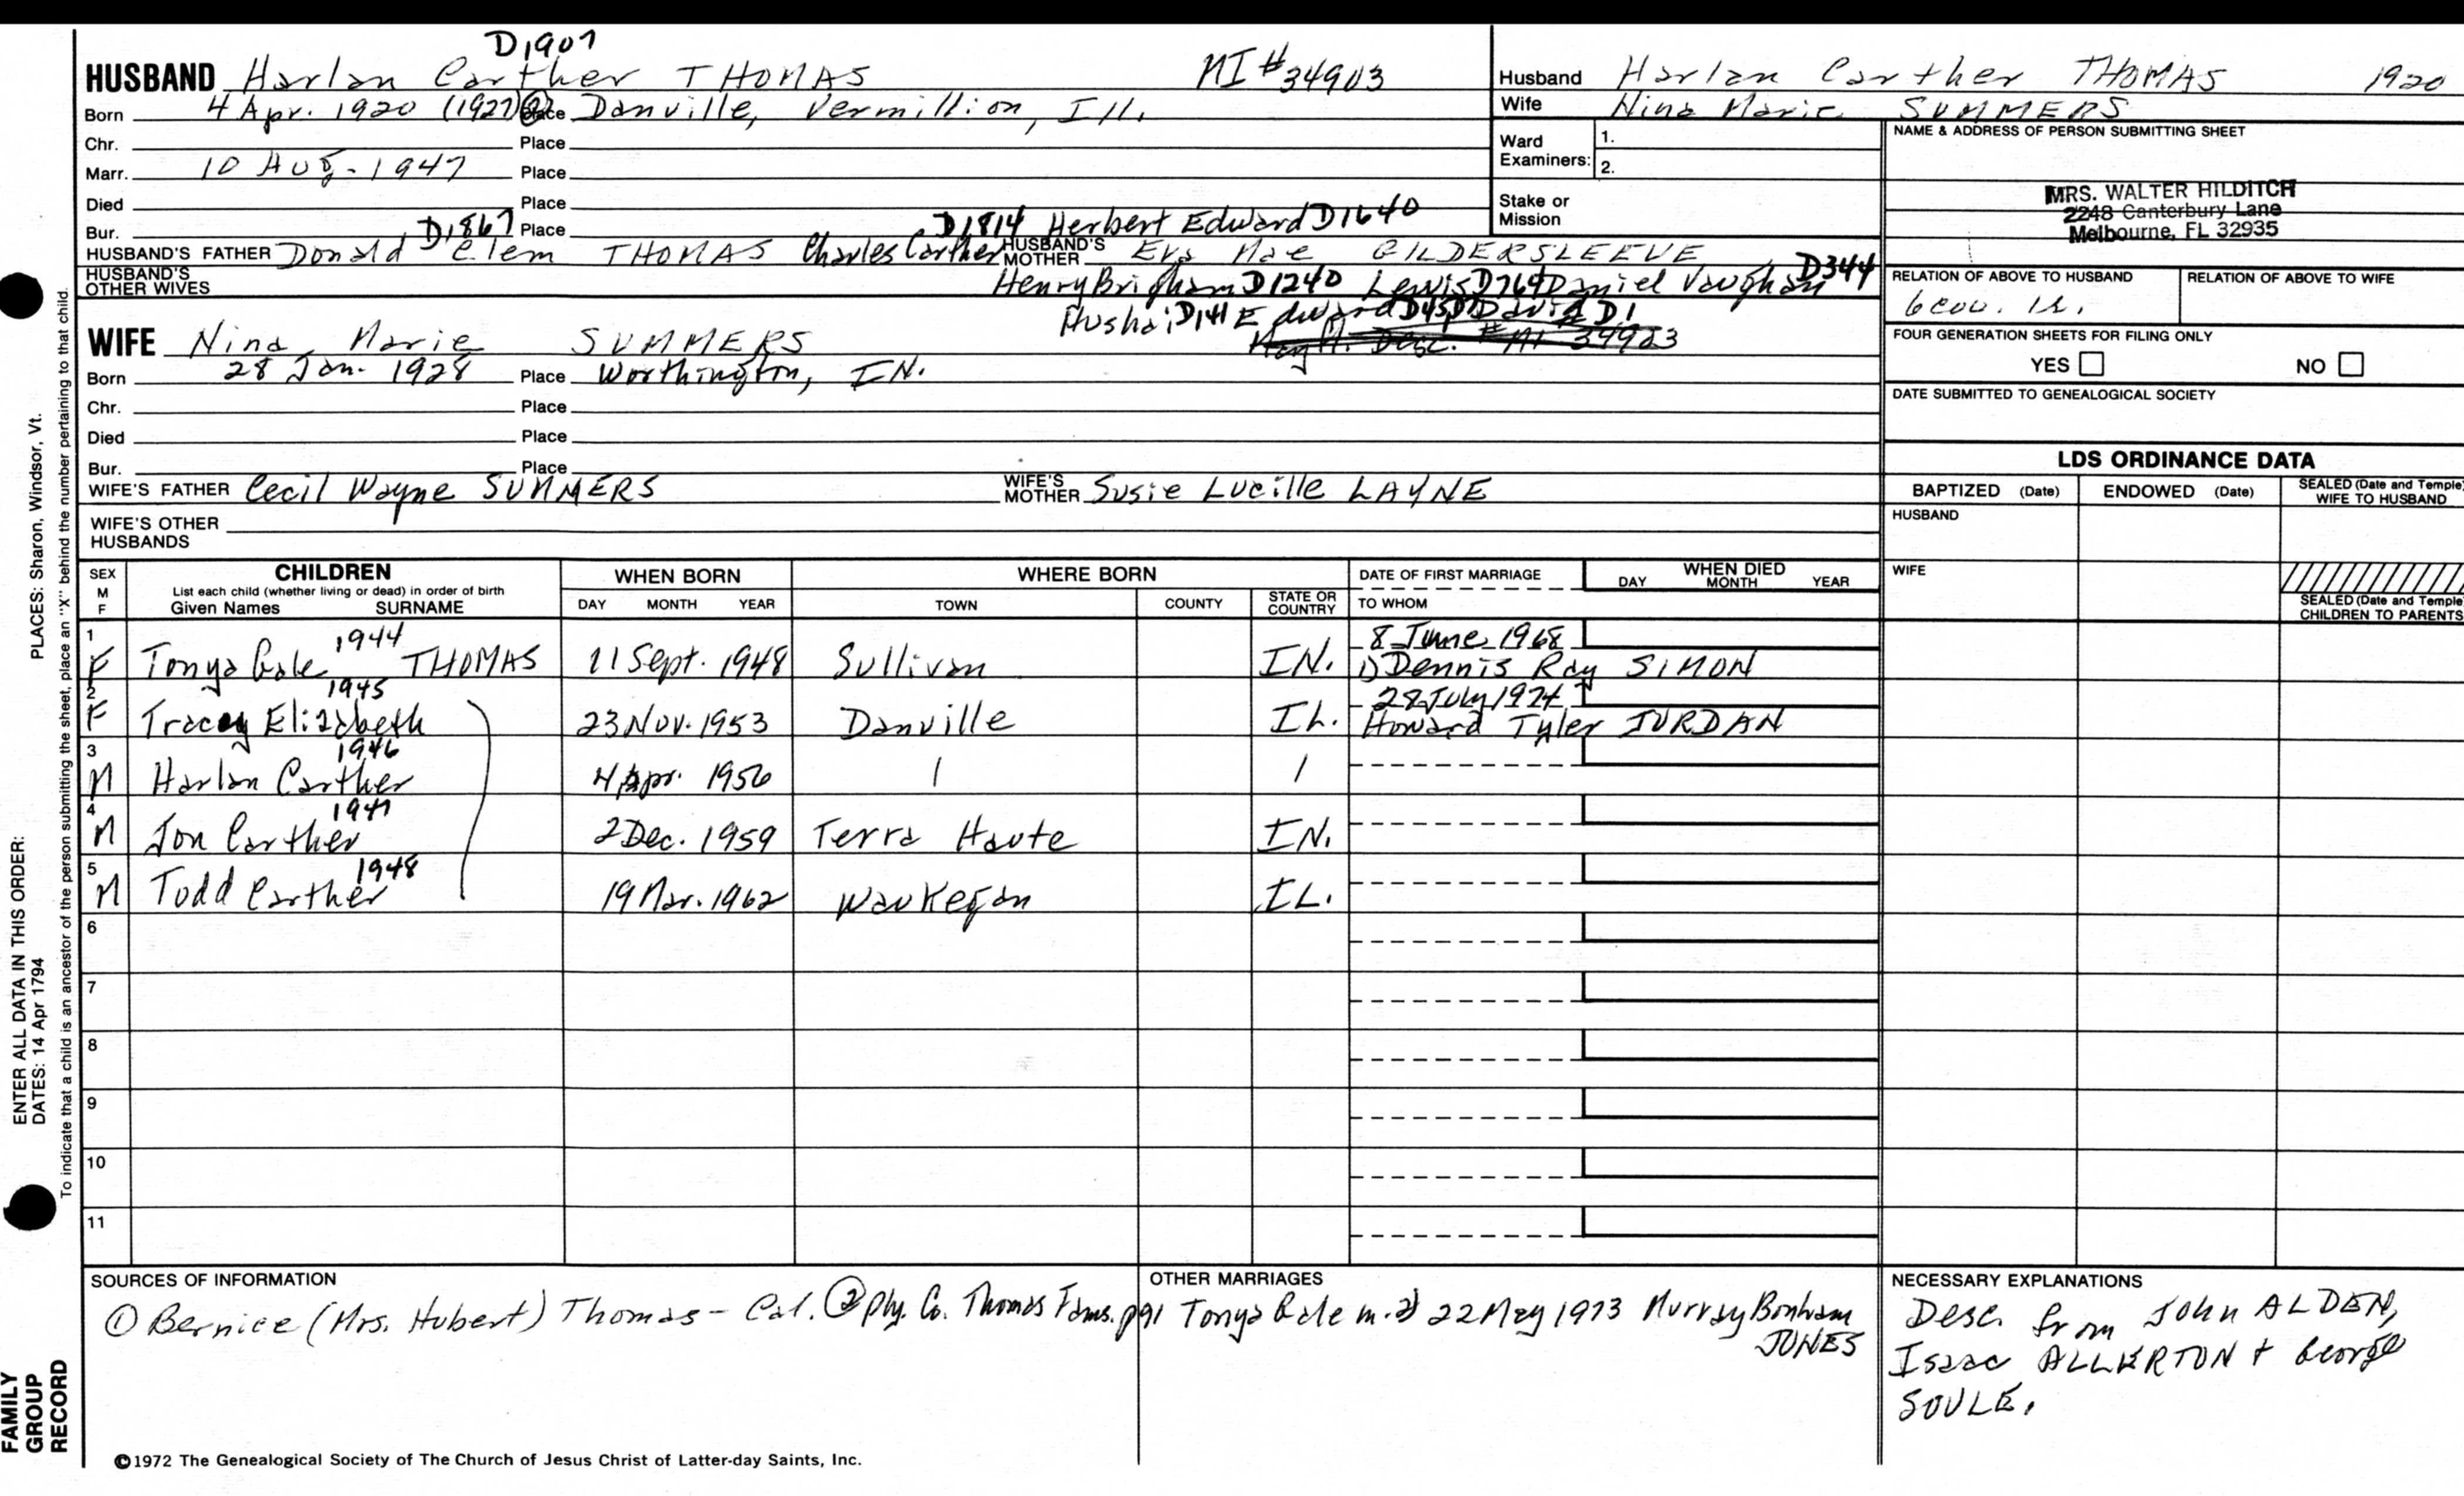 D1907
HUSBAND Harlan Carther THOMAS MI #34903
Born 4 Apr. 1920 (1927) Place Danville, Vermillion, Ill.
Chr. Place
Marr. 10 Aug. 1947 Place
Died Place
Bur. D1867 Place D1814 Herbert Edward D1640
HUSBAND'S FATHER Donald Clem THOMAS Charles Carther HUSBAND'S MOTHER Eva Mae GILDERSLEEVE
HUSBAND'S OTHER WIVES Henry Brigham D1240 Lewis D764 Daniel Vaughan D344
Hushai D141 Edward D45 David D1
WIFE Nina Marie SUMMERS
Born 28 Jan. 1928 Place Worthington, IN.
Chr. Place
Died Place
Bur. Place
WIFE'S FATHER Cecil Wayne SUMMERS WIFE'S MOTHER Susie Lucille LAYNE
WIFE'S OTHER HUSBANDS
Husband Harlan Carther THOMAS 1920
Wife Nina Marie SUMMERS
Ward Examiners: 1.
2.
Stake or Mission
NAME & ADDRESS OF PERSON SUBMITTING SHEET
MRS. WALTER HILDITCH
2248 Canterbury Lane
Melbourne, FL 32935
RELATION OF ABOVE TO HUSBAND RELATION OF ABOVE TO WIFE
6 cou. 1r.
FOUR GENERATION SHEETS FOR FILING ONLY
YES NO
DATE SUBMITTED TO GENEALOGICAL SOCIETY
LDS ORDINANCE DATA
BAPTIZED (Date) ENDOWED (Date) SEALED (Date and Temple) WIFE TO HUSBAND
HUSBAND
WIFE
SEALED (Date and Temple) CHILDREN TO PARENTS
SEX M F CHILDREN WHEN BORN WHERE BORN DATE OF FIRST MARRIAGE WHEN DIED
List each child (whether living or dead) in order of birth
Given Names SURNAME DAY MONTH YEAR TOWN COUNTY STATE OR COUNTRY TO WHOM DAY MONTH YEAR
1 1944 8 June 1968
F Tonya Gale THOMAS 11 Sept. 1948 Sullivan IN. 1) Dennis Ray SIMON
2 1945 28 July 1974
F Tracey Elizabeth 23 Nov. 1953 Danville IL. Howard Tyler JORDAN
3 1946
M Harlan Carther 4 Apr. 1956
4 1947
M Jon Carther 2 Dec. 1959 Terra Haute IN.
5 1948
M Todd Carther 19 Mar. 1962 Waukegan IL.
6
7
8
9
10
11
SOURCES OF INFORMATION
① Bernice (Mrs. Hubert) Thomas - Cal. ② Ply. Co. Thomas Fams. p91
OTHER MARRIAGES
Tonya Gale m. 2) 22 May 1973 Murray Bonham
JONES
NECESSARY EXPLANATIONS
Desc. from John ALDEN,
Isaac ALLERTON + George
SOULE.
©1972 The Genealogical Society of The Church of Jesus Christ of Latter-day Saints, Inc.
FAMILY GROUP RECORD
ENTER ALL DATA IN THIS ORDER: PLACES: Sharon, Windsor, Vt.
DATES: 14 Apr 1794
To indicate that a child is an ancestor of the person submitting the sheet, place an "X" behind the number pertaining to that child.